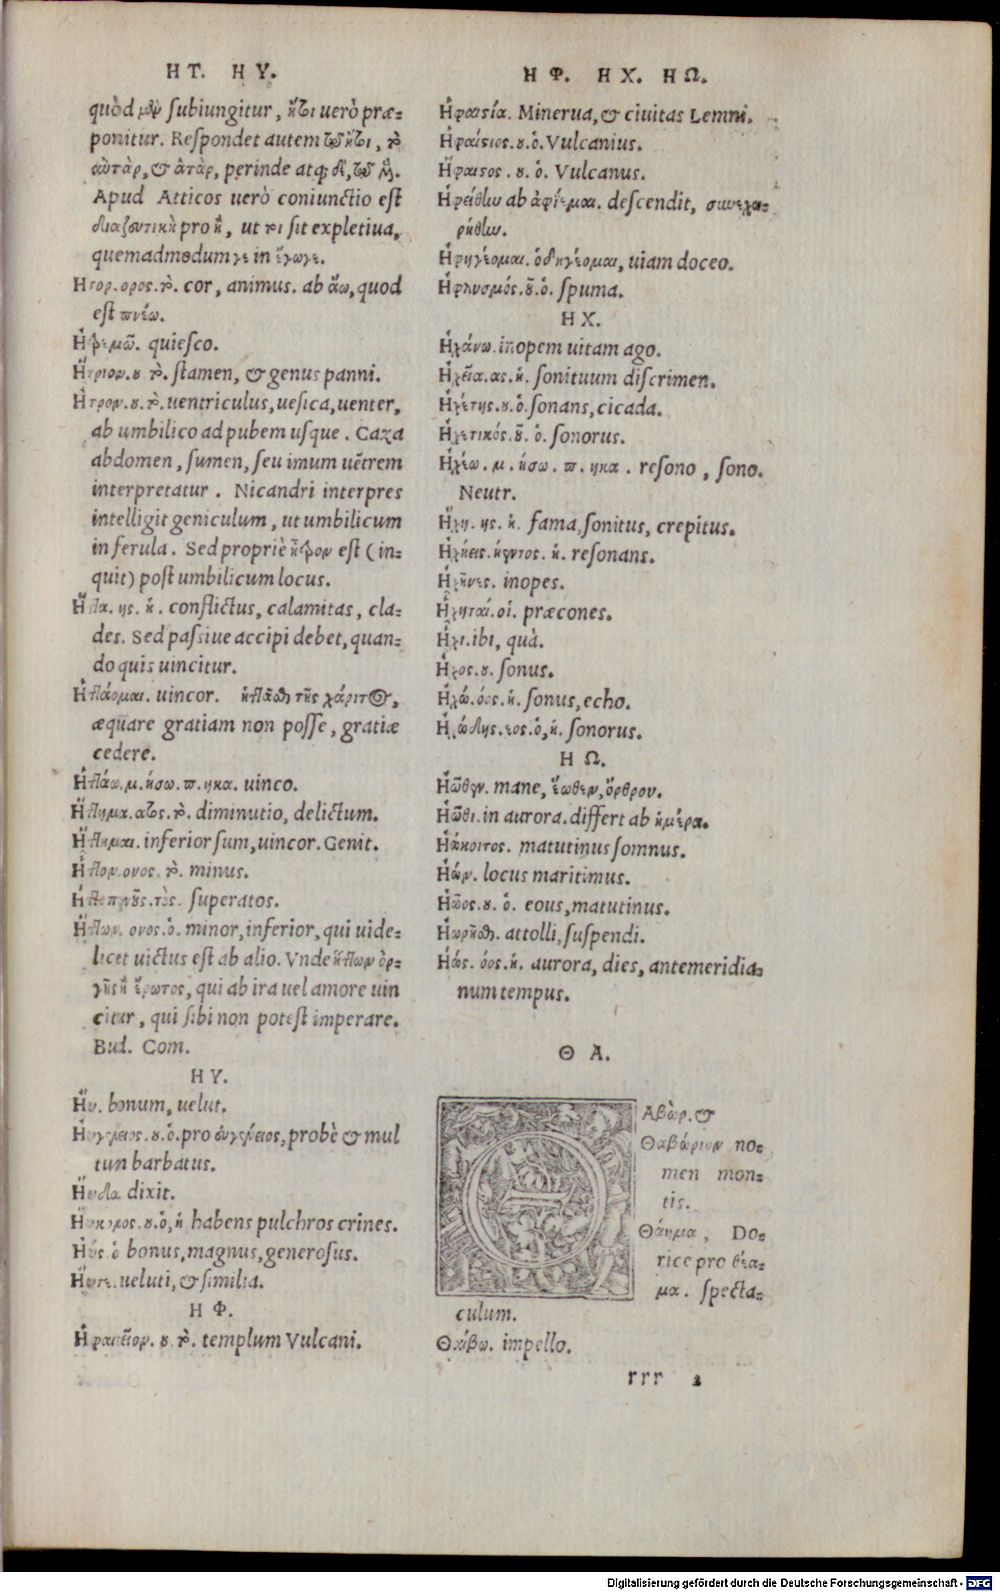 ΗΤ. ΗΥ.
quòd μὲν subiungitur, ἤτοι uerò præ=
ponitur. Respondet autem τῷ ἤτοι, τὸ
αὐτὰρ, & ἀτὰρ, perinde atq; δὲ, τῷ μὲν.
Apud Atticos uerò coniunctio est
διαζευτικὴ pro ἢ, ut τοι sit expletiua,
quemadmodum γε in ἔγωγε.
Ητορ.ορος.τὸ. cor, animus. ab ἄω, quod
est πνέω.
Ἠρεμῶ. quiesco.
Ἤτριον.ου τὸ. stamen, & genus panni.
Ἦτρον.ου.τὸ. uentriculus, uesica, uenter,
ab umbilico ad pubem usque. Gaza
abdomen, sumen, seu imum uẽtrem
interpretatur. Nicandri interpres
intelligit geniculum, ut umbilicum
in ferula. Sed propriè ἦτρον est (in=
quit) post umbilicum locus.
Ἧττα. ης. ἡ. conflictus, calamitas, cla=
des. Sed passiue accipi debet, quan=
do quis uincitur.
Ἡττάομαι. uincor. ἡττᾶσθαι τῆς χάριτος,
æquare gratiam non posse, gratiæ
cedere.
Ἡττάω.μ.ήσω.π.ηκα. uinco.
Ἥττημα.ατος.τὸ. diminutio, delictum.
Ἥττημαι. inferior sum, uincor. Genit.
Ἧττον.ονος. τὸ. minus.
superatos.
Ἥττων. ονος.ὁ. minor, inferior, qui uide=
licet uictus est ab alio. Vnde ἥττων ὀρ=
γῆς ἢ ἔρωτος, qui ab ira uel amore uin
citur, qui sibi non potest imperare.
Bud. Com.
ΗΥ.
Ἠΰ. bonum, uelut.
Ἠϋγένειος.ου.ὁ. pro εὐγένειος, probè & mul
tum barbatus.
Ἤυδα dixit.
Ἠΰκομος.ου.ὁ,ἡ habens pulchros crines.
Ἠΰς.ὁ bonus, magnus, generosus.
Ἠΰτε. ueluti, & similia.
ΗΦ.
Ἡφαιστεῖον. ου. τὸ. templum Vulcani.
ΗΦ. ΗΧ. ΗΩ.
Ἡφαιστία. Minerua, & ciuitas Lemni.
Ἡφαίστιος.ου.ὁ. Vulcanius.
Ἥφαιστος. ου. ὁ. Vulcanus.
Ἠφείθην ab ἀφίεμαι. descendit, συνεχω=
ρήθην.
Ἡφηγέομαι. ὁδηγέομαι, uiam doceo.
Ἠφλυσμός.οῦ.ὁ. spuma.
ΗΧ.
Ἠχάνω. inopem uitam ago.
Ἠχεῖα.ας.ἡ. sonituum discrimen.
Ἠχέτης.ου.ὁ. sonans, cicada.
Ἠχετικός.οῦ. ὁ. sonorus.
Ἠχέω. μ. ήσω. π. ηκα. resono, sono.
Neutr.
Ἤχη. ης. ἡ. fama, sonitus, crepitus.
Ἠχήεις.ήεντος. ἡ. resonans.
Ἠχῆνες. inopes.
Ἠχηταί.οἱ. præcones.
Ἧχι. ibi, quà.
Ἦχος.ου. sonus.
Ἠχώ.όος.ἡ. sonus, echo.
Ἠχώδης.εος.ὁ,ἡ. sonorus.
ΗΩ.
Ἠῶθεν. mane, ἕωθεν, ὄρθρου.
Ἠῶθι. in aurora. differt ab ἡμέρα.
Ἠώκοιτος. matutinus somnus.
Ἠών. locus maritimus.
Ἠῶος.ου. ὁ. eous, matutinus.
Ἠωρῆσθαι. attolli, suspendi.
Ἠώς. όος.ἡ. aurora, dies, antemeridia=
num tempus.
ΘΑ.
Θ
Αβὼρ. &
Θαβώριον no=
men mon=
tis.
Θάημα, Do=
rice pro θέα=
μα. specta=
culum.
Θάβω. impello.
rrr 2
Digitalisierung gefördert durch die Deutsche Forschungsgemeinschaft - DFG